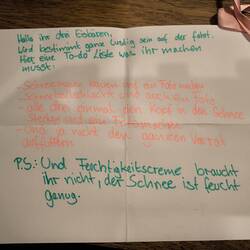 Hallo ihr drei Eisbären,
Wird bestimmt ganze lustig sein auf der fahrt.
Hier eine To-do Liste was ihr machen
müsst:
- Schneemann bauen und ein Foto machen
- Schneeballschlacht und auch ein Foto
- alle drei einmal den Kopf in den Schnee
stecken und ein Foto machen
- Und ja nicht den ganzen Vorrat
auffuttern
P.S.: Und Feuchtigkeitscreme braucht
ihr nicht, der Schnee ist feucht
genug.